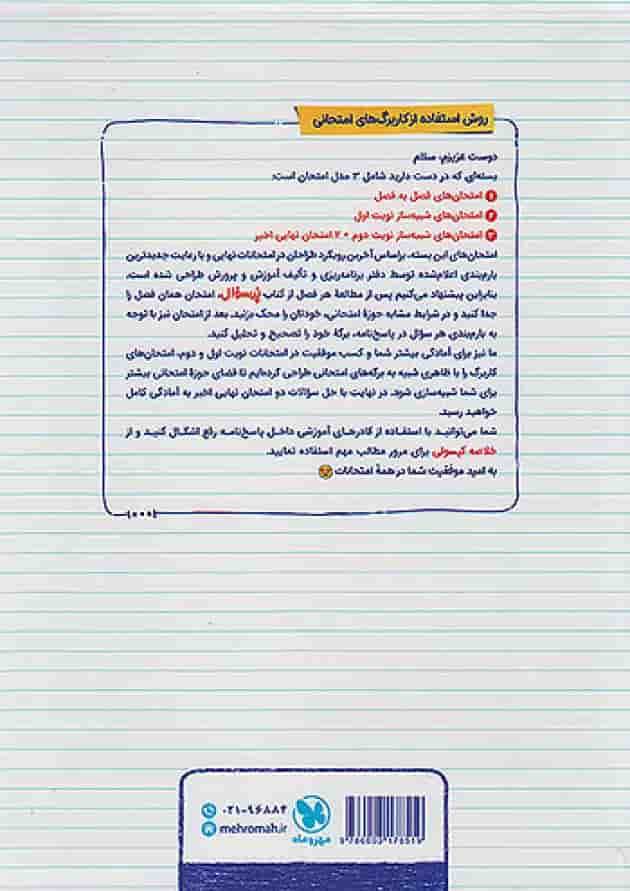 روش استفاده از کاربرگ‌های امتحانی
دوست عزیزم، سلام
بسته‌ای که در دست دارید شامل ۳ مدل امتحان است:
۱ امتحان‌های فصل به فصل
۲ امتحان‌های شبیه‌ساز نوبت اول
۳ امتحان‌های شبیه‌ساز نوبت دوم + ۲ امتحان نهایی اخیر
امتحان‌های این بسته، براساس آخرین رویکرد طراحان در امتحانات نهایی و با رعایت جدیدترین
بارم‌بندی اعلام‌شده توسط دفتر برنامه‌ریزی و تألیف آموزش و پرورش طراحی شده است.
بنابراین پیشنهاد می‌کنیم پس از مطالعهٔ هر فصل از کتاب پُرسؤال، امتحان همان فصل را
جدا کنید و در شرایط مشابه حوزهٔ امتحانی، خودتان را محک بزنید. بعد از امتحان نیز با توجه
به بارم‌بندی هر سؤال در پاسخ‌نامه، برگهٔ خود را تصحیح و تحلیل کنید.
ما نیز برای آمادگی بیشتر شما و کسب موفقیت در امتحانات نوبت اول و دوم، امتحان‌های
کاربرگ را با ظاهری شبیه به برگه‌های امتحانی طراحی کرده‌ایم تا فضای حوزهٔ امتحانی بیشتر
برای شما شبیه‌سازی شود. در نهایت با حل سؤالات دو امتحان نهایی اخیر به آمادگی کامل
خواهید رسید.
شما می‌توانید با استفاده از کادرهای آموزشی داخل پاسخ‌نامه رفع اشکال کنید و از
خلاصه کپسولی برای مرور مطالب مهم استفاده نمایید.
به امید موفقیت شما در همهٔ امتحانات
۰۲۱-۹۶۸۸۴
mehromah.ir
مهروماه
9 786003 176519